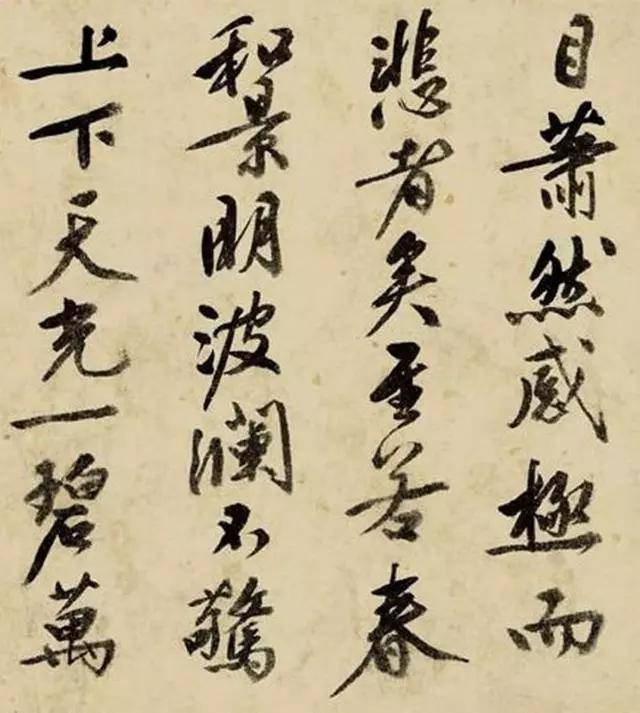 目蕭然感極而
悲者矣至若春
和景明波瀾不驚
上下天光一碧萬